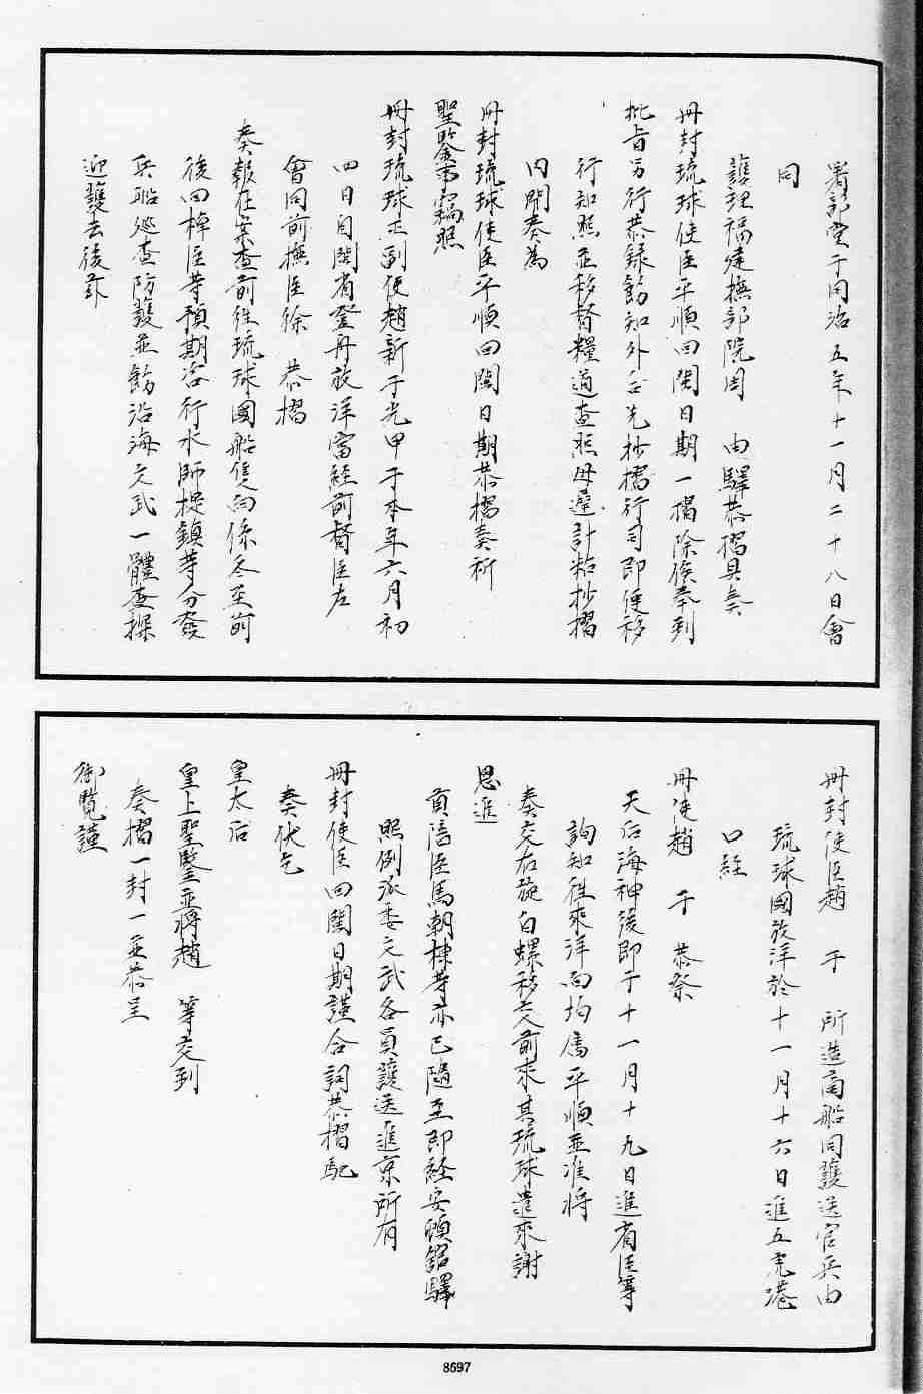 署部堂于同治五年十一月二十八日會
同
護理福建撫部院周　由驛恭摺具奏
冊封琉球使臣平順回閩日期一摺除俟奉到
批旨另行恭錄飭知外合先抄摺行司即便移
行知照並移督糧道查照毋違計粘抄摺
內開奏為
冊封琉球使臣平順回閩日期恭摺奏祈
聖鑒事竊照
冊封琉球正副使趙新于光甲于本年六月初
四日自閩省登舟放洋當經前督臣左
會同前撫臣徐　恭摺
奏報在案查前往琉球國船隻向係冬至前
後回棹臣等預期咨行水師提鎮等分發
兵船巡查防護並飭沿海文武一體查探
迎護去後茲
冊封使臣趙　于　所造兩船同護送官兵由
琉球國放洋於十一月十六日進五虎港
口經
冊使趙　于　恭祭
天后海神後即于十一月十九日進省臣等
詢知往來洋面均屬平順並准將
奏交右旋白螺移交前來其琉球遣來謝
恩進
貢陪臣馬朝棟等亦已隨至即經安頓館驛
照例派委文武各員護送進京所有
冊封使臣回閩日期謹合詞恭摺配
奏伏乞
皇太后
皇上聖鑒並將趙　等交到
奏摺一封一並恭呈
御覽謹
8697